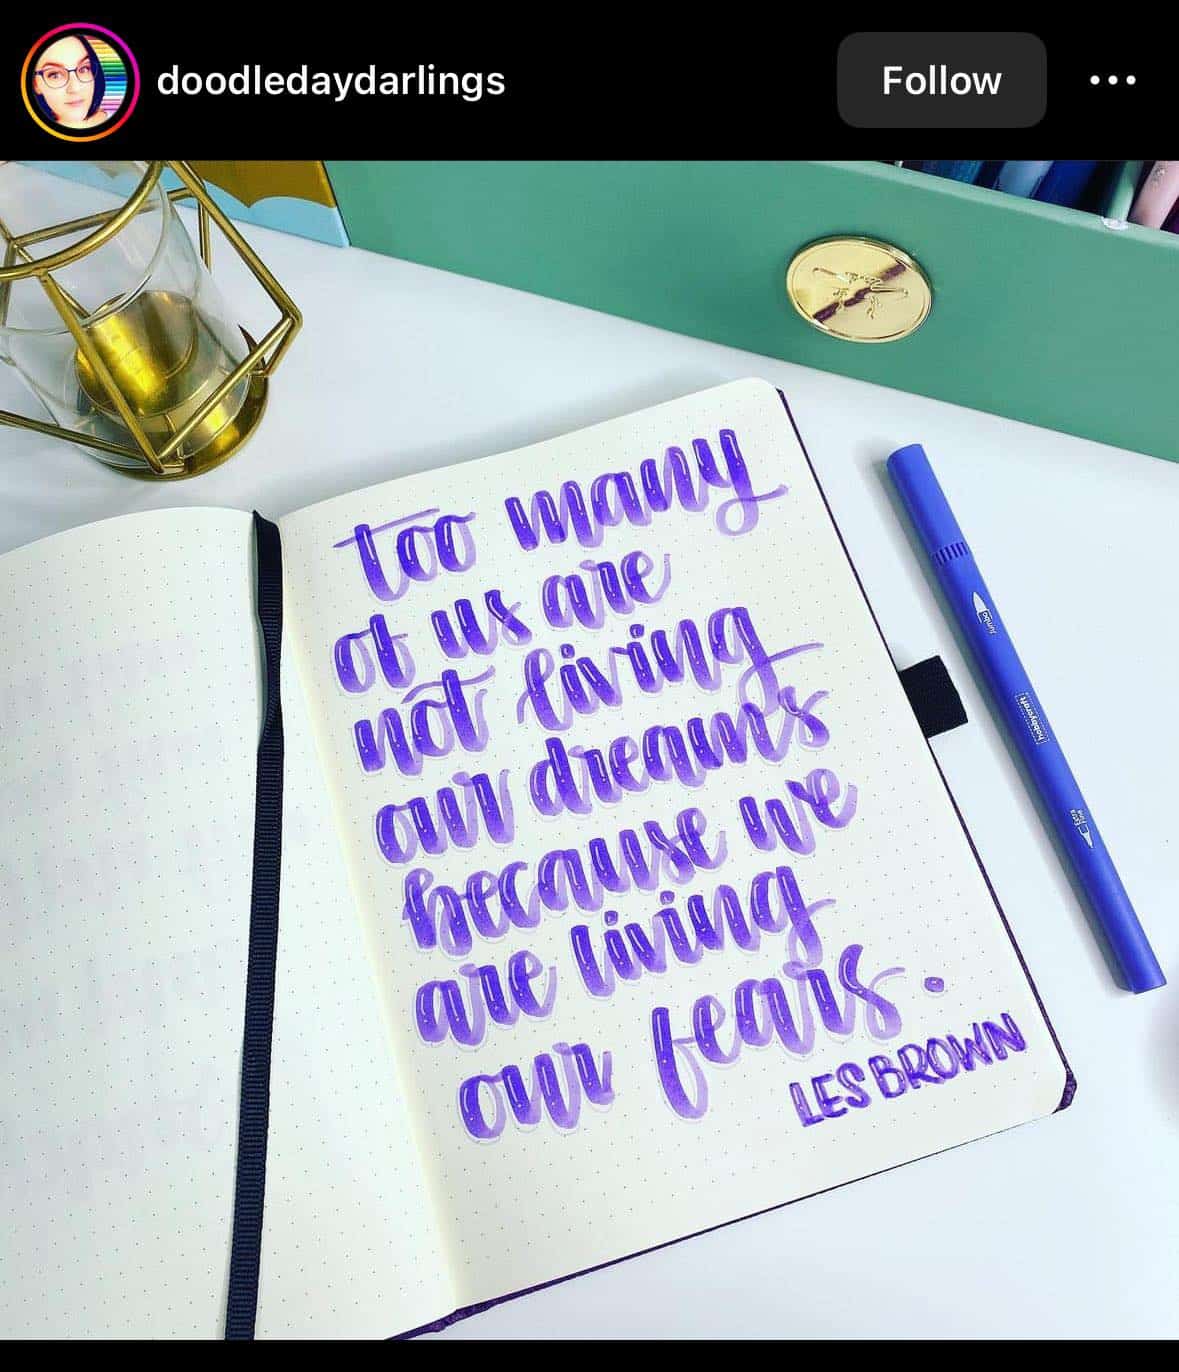 doodledaydarlings
Follow
too many
of us are
not living
our dreams
because we
are living
our fears.
LES BROWN
Jumbo
hobbycraft
Extra
fine